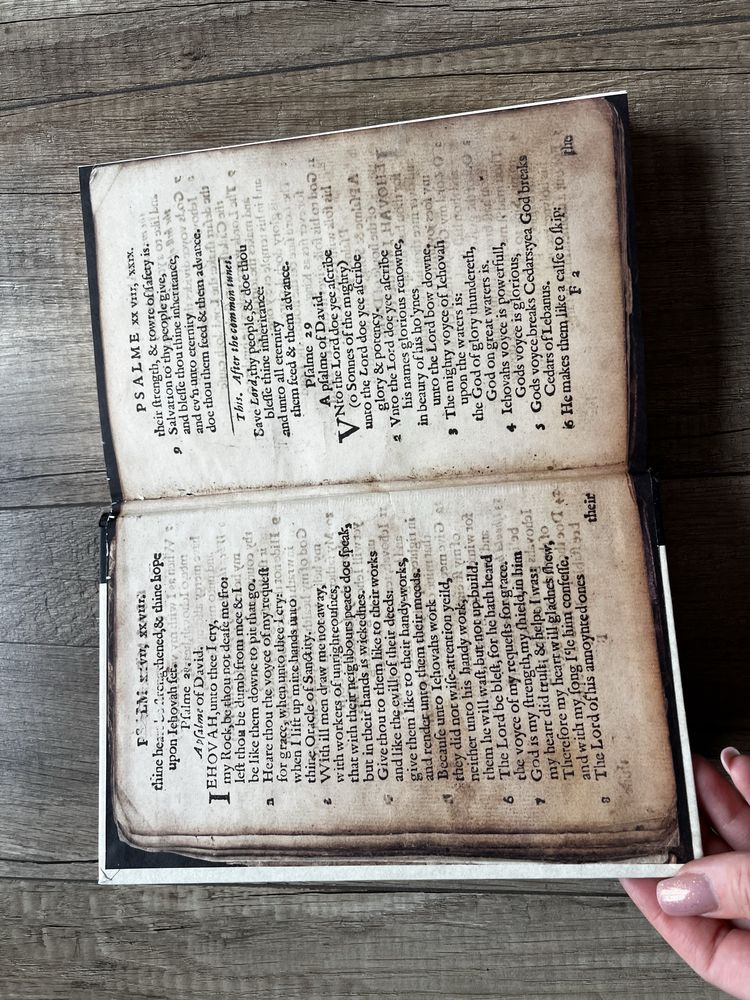 PSALM XXVII, XXVIII.
thine heart be strengthened, & thine hope
upon Iehovah set.
Psalme 28.
A psalme of David.
IEHOVAH, unto thee I cry,
my Rock, be thou not deafe me frõ
left thou be dumb from mee & I
be like them downe to pit that go.
2 Heare thou the voyce of my request
for grace, when unto thee I cry:
when I lift up mine hands unto
thine Oracle of Sanctity.
With ill men draw me not away,
with workers of unrighteousnes,
that with their neighbours peace doe speak,
but in their hands is wickednes.
Give thou to them like to their works
and like the evill of their deeds:
give them like to their handy-works,
and render unto them their meeds.
Because unto Iehovahs work
they did not wise-attention yeild,
neither unto his handy work,
them he will wast, but not up-build.
6 The Lord be blest, for he hath heard
the voyce of my requests for grace.
7 God is my strength, my shield, in him
my heart did trust, & helpt I was:
Therefore my heart will gladnes shew,
and with my song I'le him confesse.
8 The Lord of his annoynted ones
their
PSALME XXVIII, XXIX.
their strength, & towre of safety is.
9 Salvation to thy people give,
and blesse thou thine inheritance,
and ev'n unto eternity
doe thou them feed & them advance.
This. After the common tunes.
Save Lord, thy people, & doe thou
blesse thine inheritance:
and unto all eternity
them feed & them advance.
Psalme 29
A psalme of David.
VNto the Lord doe yee ascribe
(o Sonnes of the mighty)
unto the Lord doe yee ascribe
glory & potency.
2 Vnto the Lord doe yee ascribe
his names glorious renowne,
in beauty of his holynes
unto the Lord bow downe.
3 The mighty voyce of Iehovah
upon the waters is:
the God of glory thundereth,
God on great waters is.
4 Iehovahs voyce is powerfull,
Gods voyce is glorious,
5 Gods voyce breaks Cedars: yea God breaks
Cedars of Lebanus.
6 He makes them like a calfe to skip:
F 2
the